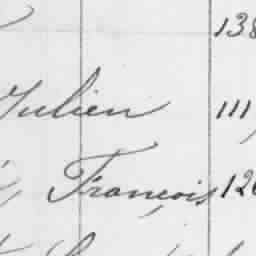 138
Julien 111,
François 126